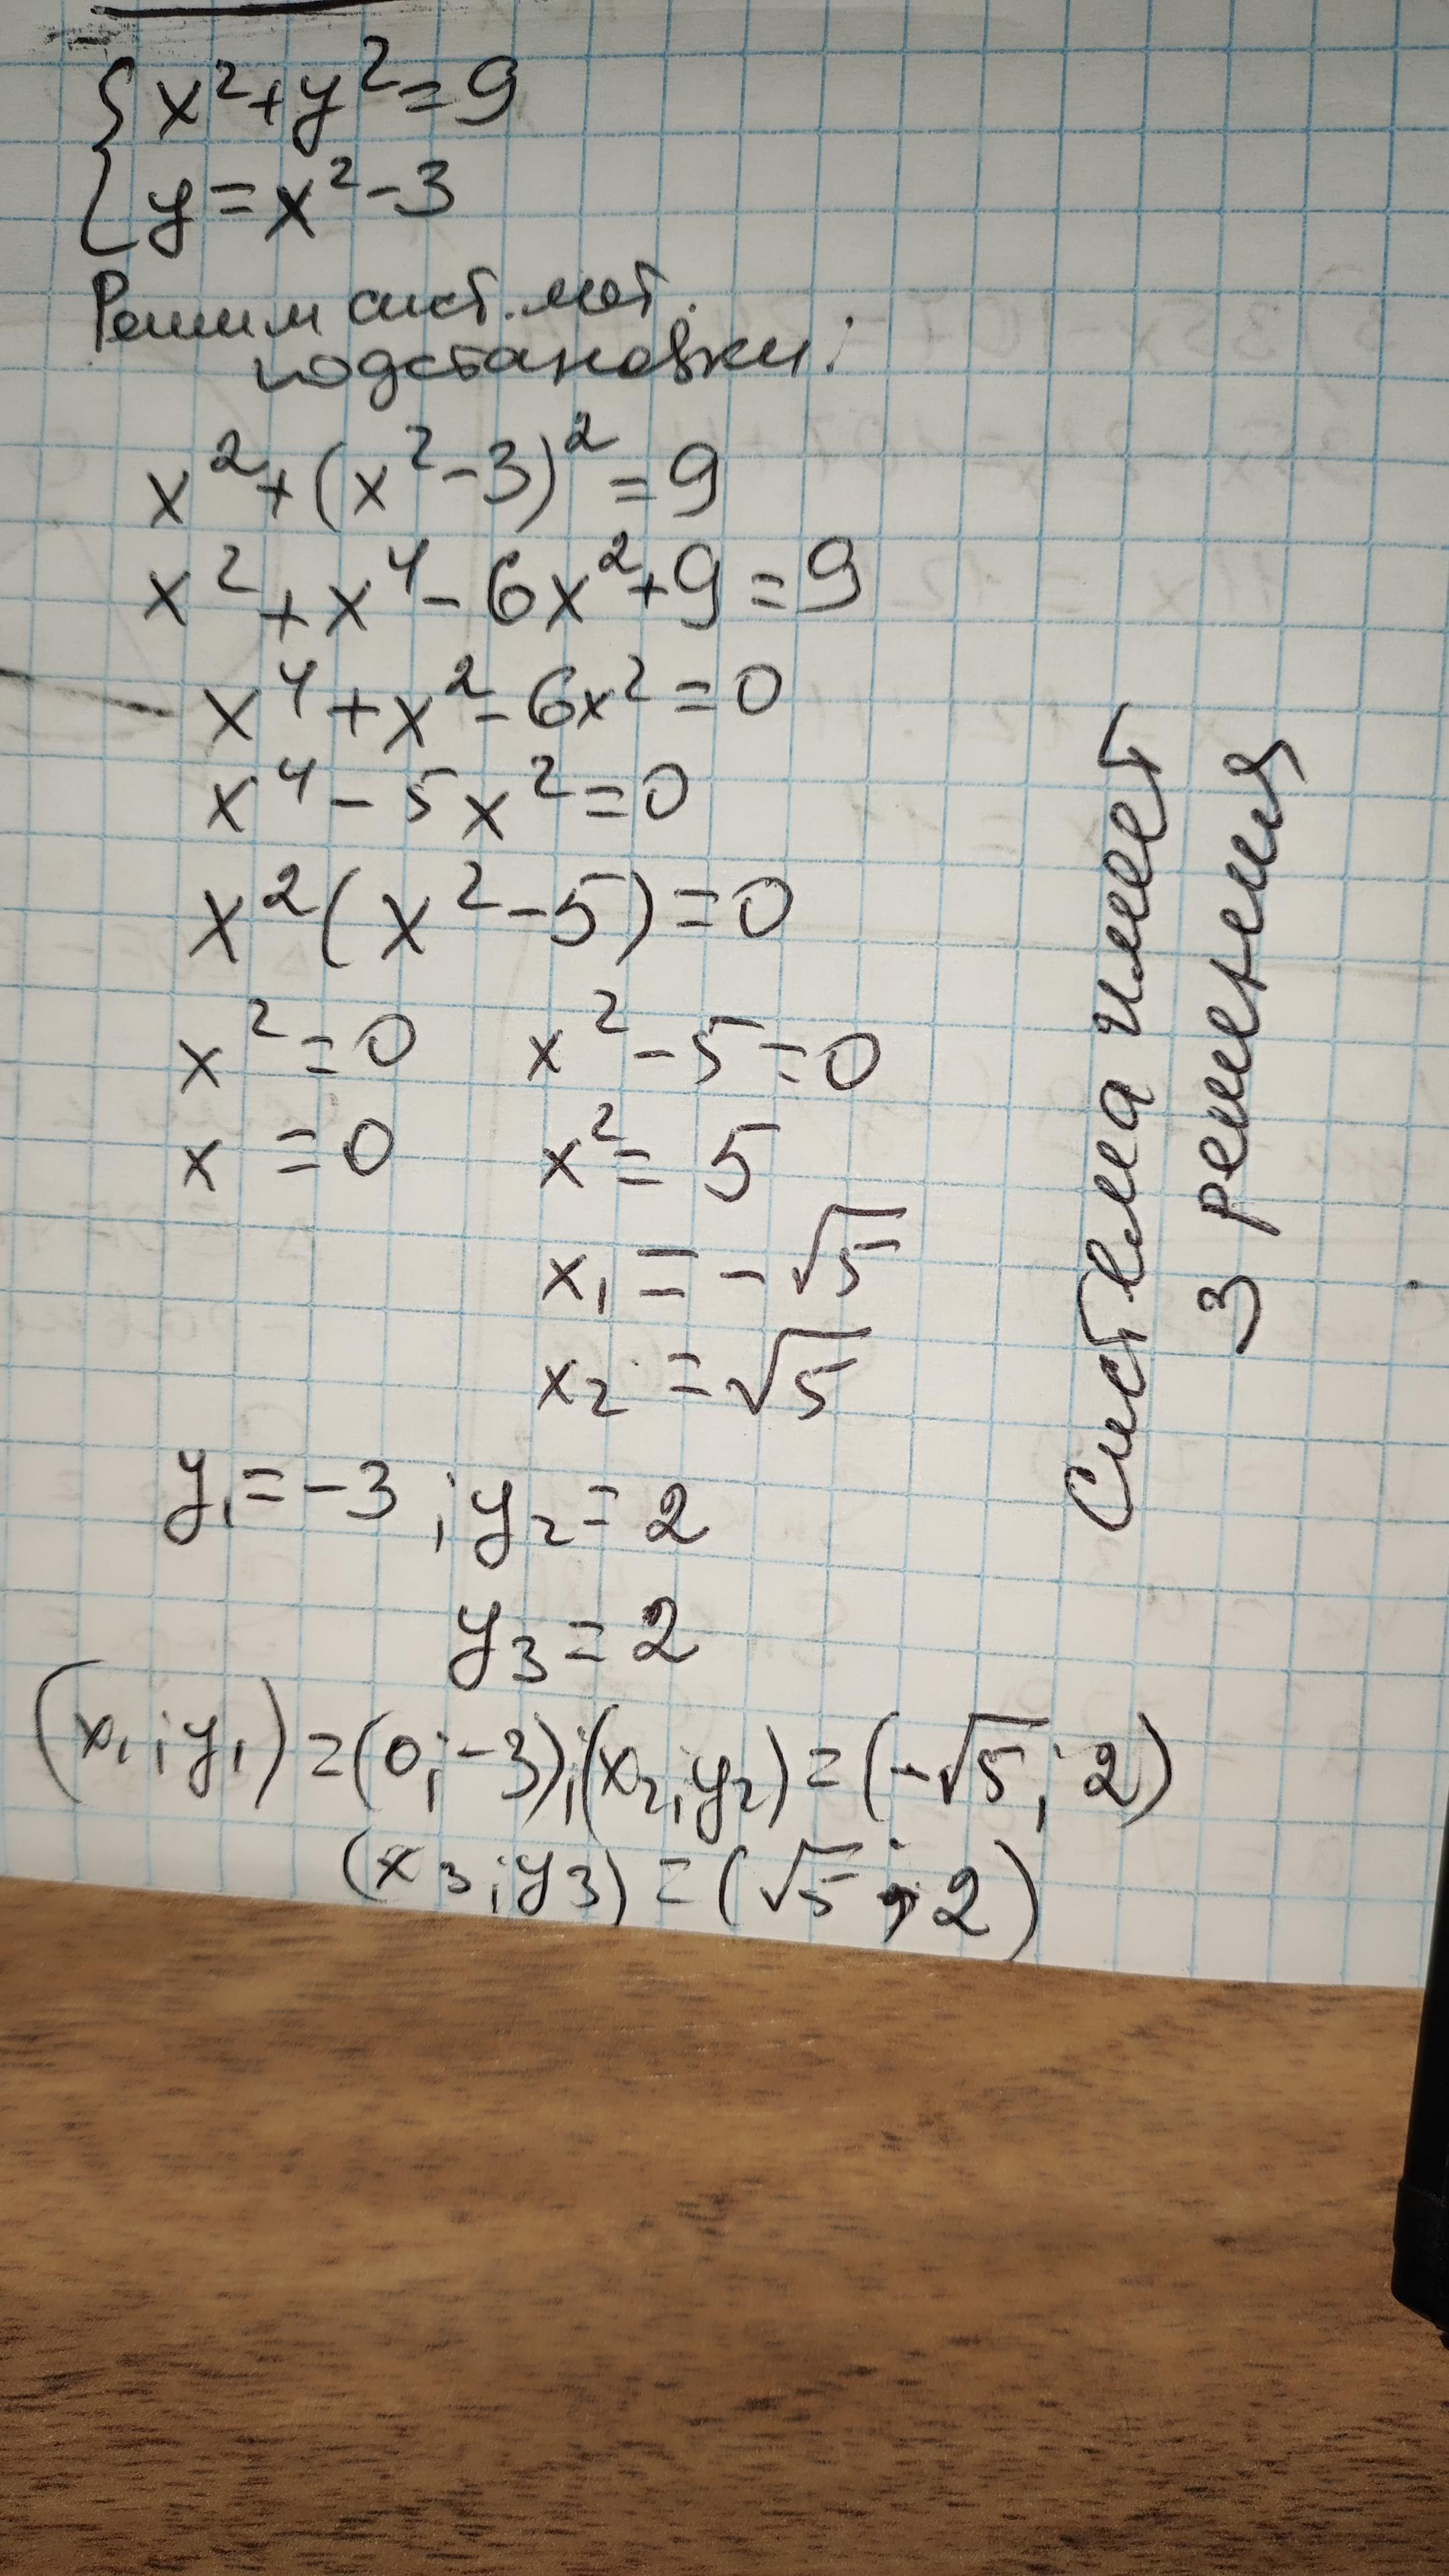 { x²+y²=9
y=x²-3
Решим сист. мет.
подстановки:
x²+(x²-3)²=9
x²+x⁴-6x²+9=9
x⁴+x²-6x²=0
x⁴-5x²=0
x²(x²-5)=0
x²=0 x²-5=0
x=0 x²=5
x₁=-√5
x₂=√5
y₁=-3; y₂=2
y₃=2
(x₁;y₁)=(0;-3);(x₂;y₂)=(-√5;2)
(x₃;y₃)=(√5;2)
Система имеет
3 решения